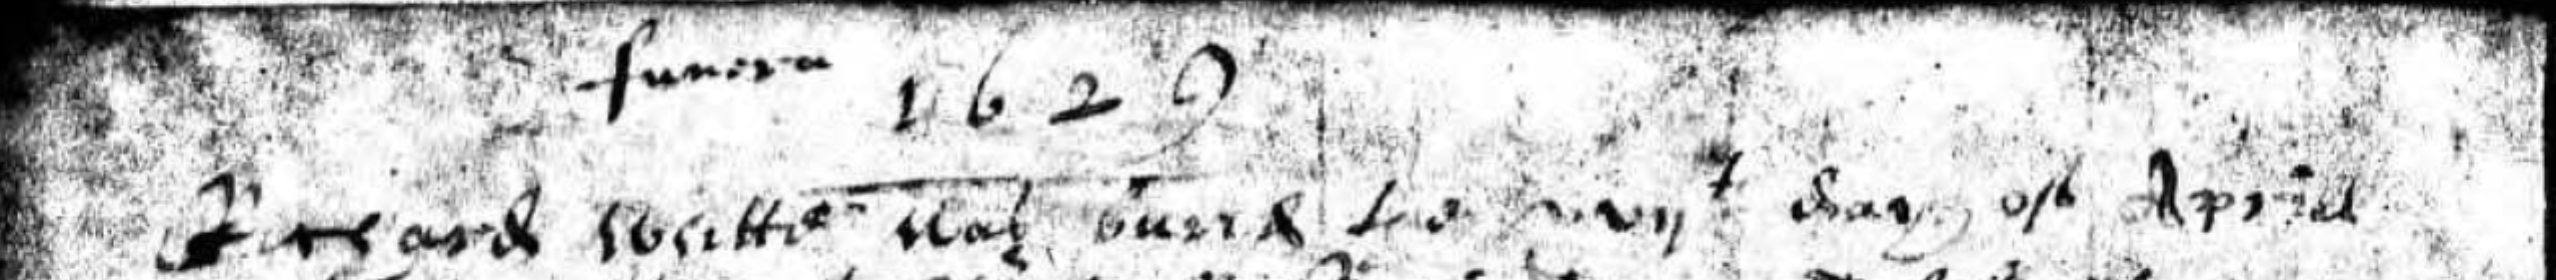 funera 1629
Richard Watts was buried the xxvijt day of Aprill